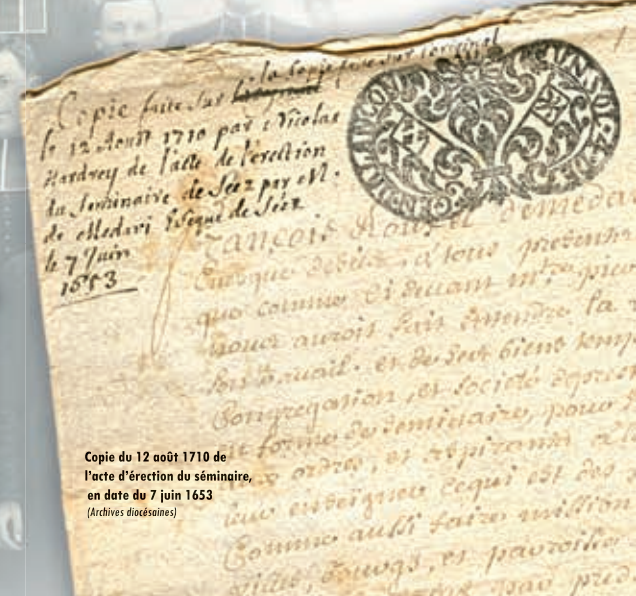 la copie faite sur l'original
Copie faite sur l'original
le 12 Aoust 1710 par Nicolas
Hardrey de l'acte de l'erection
du Seminaire de Séez par M.
de Medavi Evêque de Séez
le 7 Juin
1653
françois Rouxel de meda
Evesque de Séez, a tous presents
que comme cy devant
nous auroit fait entendre la
son travail, et de ses biens temp
Congregation, et societé de prest
en forme de seminaire, pour
aux ordres, et aspirants a
leur enseigner ce qui est des
Comme aussi faire mission
villes, bourgs, et parroisses
par pred
Copie du 12 août 1710 de
l'acte d'érection du séminaire,
en date du 7 juin 1653
(Archives diocésaines)